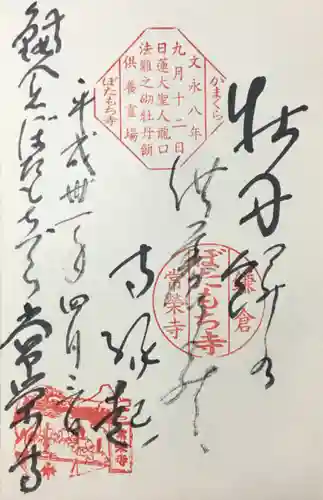 文永八年
九月十二日
日蓮大聖人龍口
法難之砌牡丹餅
供養霊場
かまくら
ぼたもち寺
牡丹餅
供養
寺縁起
鎌倉
ぼたもち寺
常榮寺
平成卅一年四月
ぼたもちでら
常榮寺